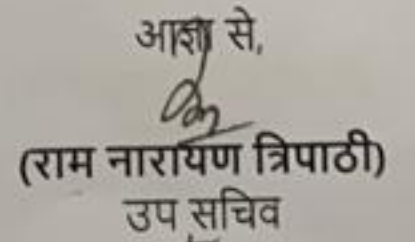 आज्ञा से,
(राम नारायण त्रिपाठी)
उप सचिव